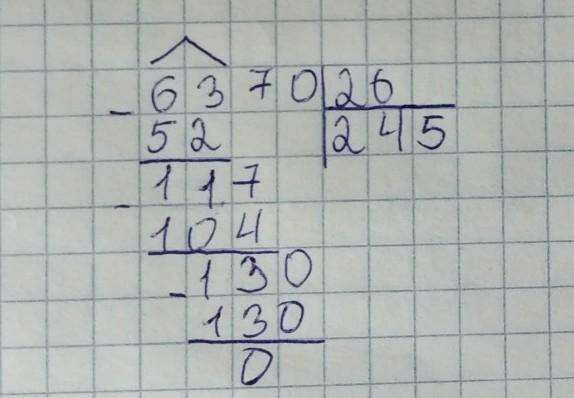 6370 26
52 245
117
104
130
130
0